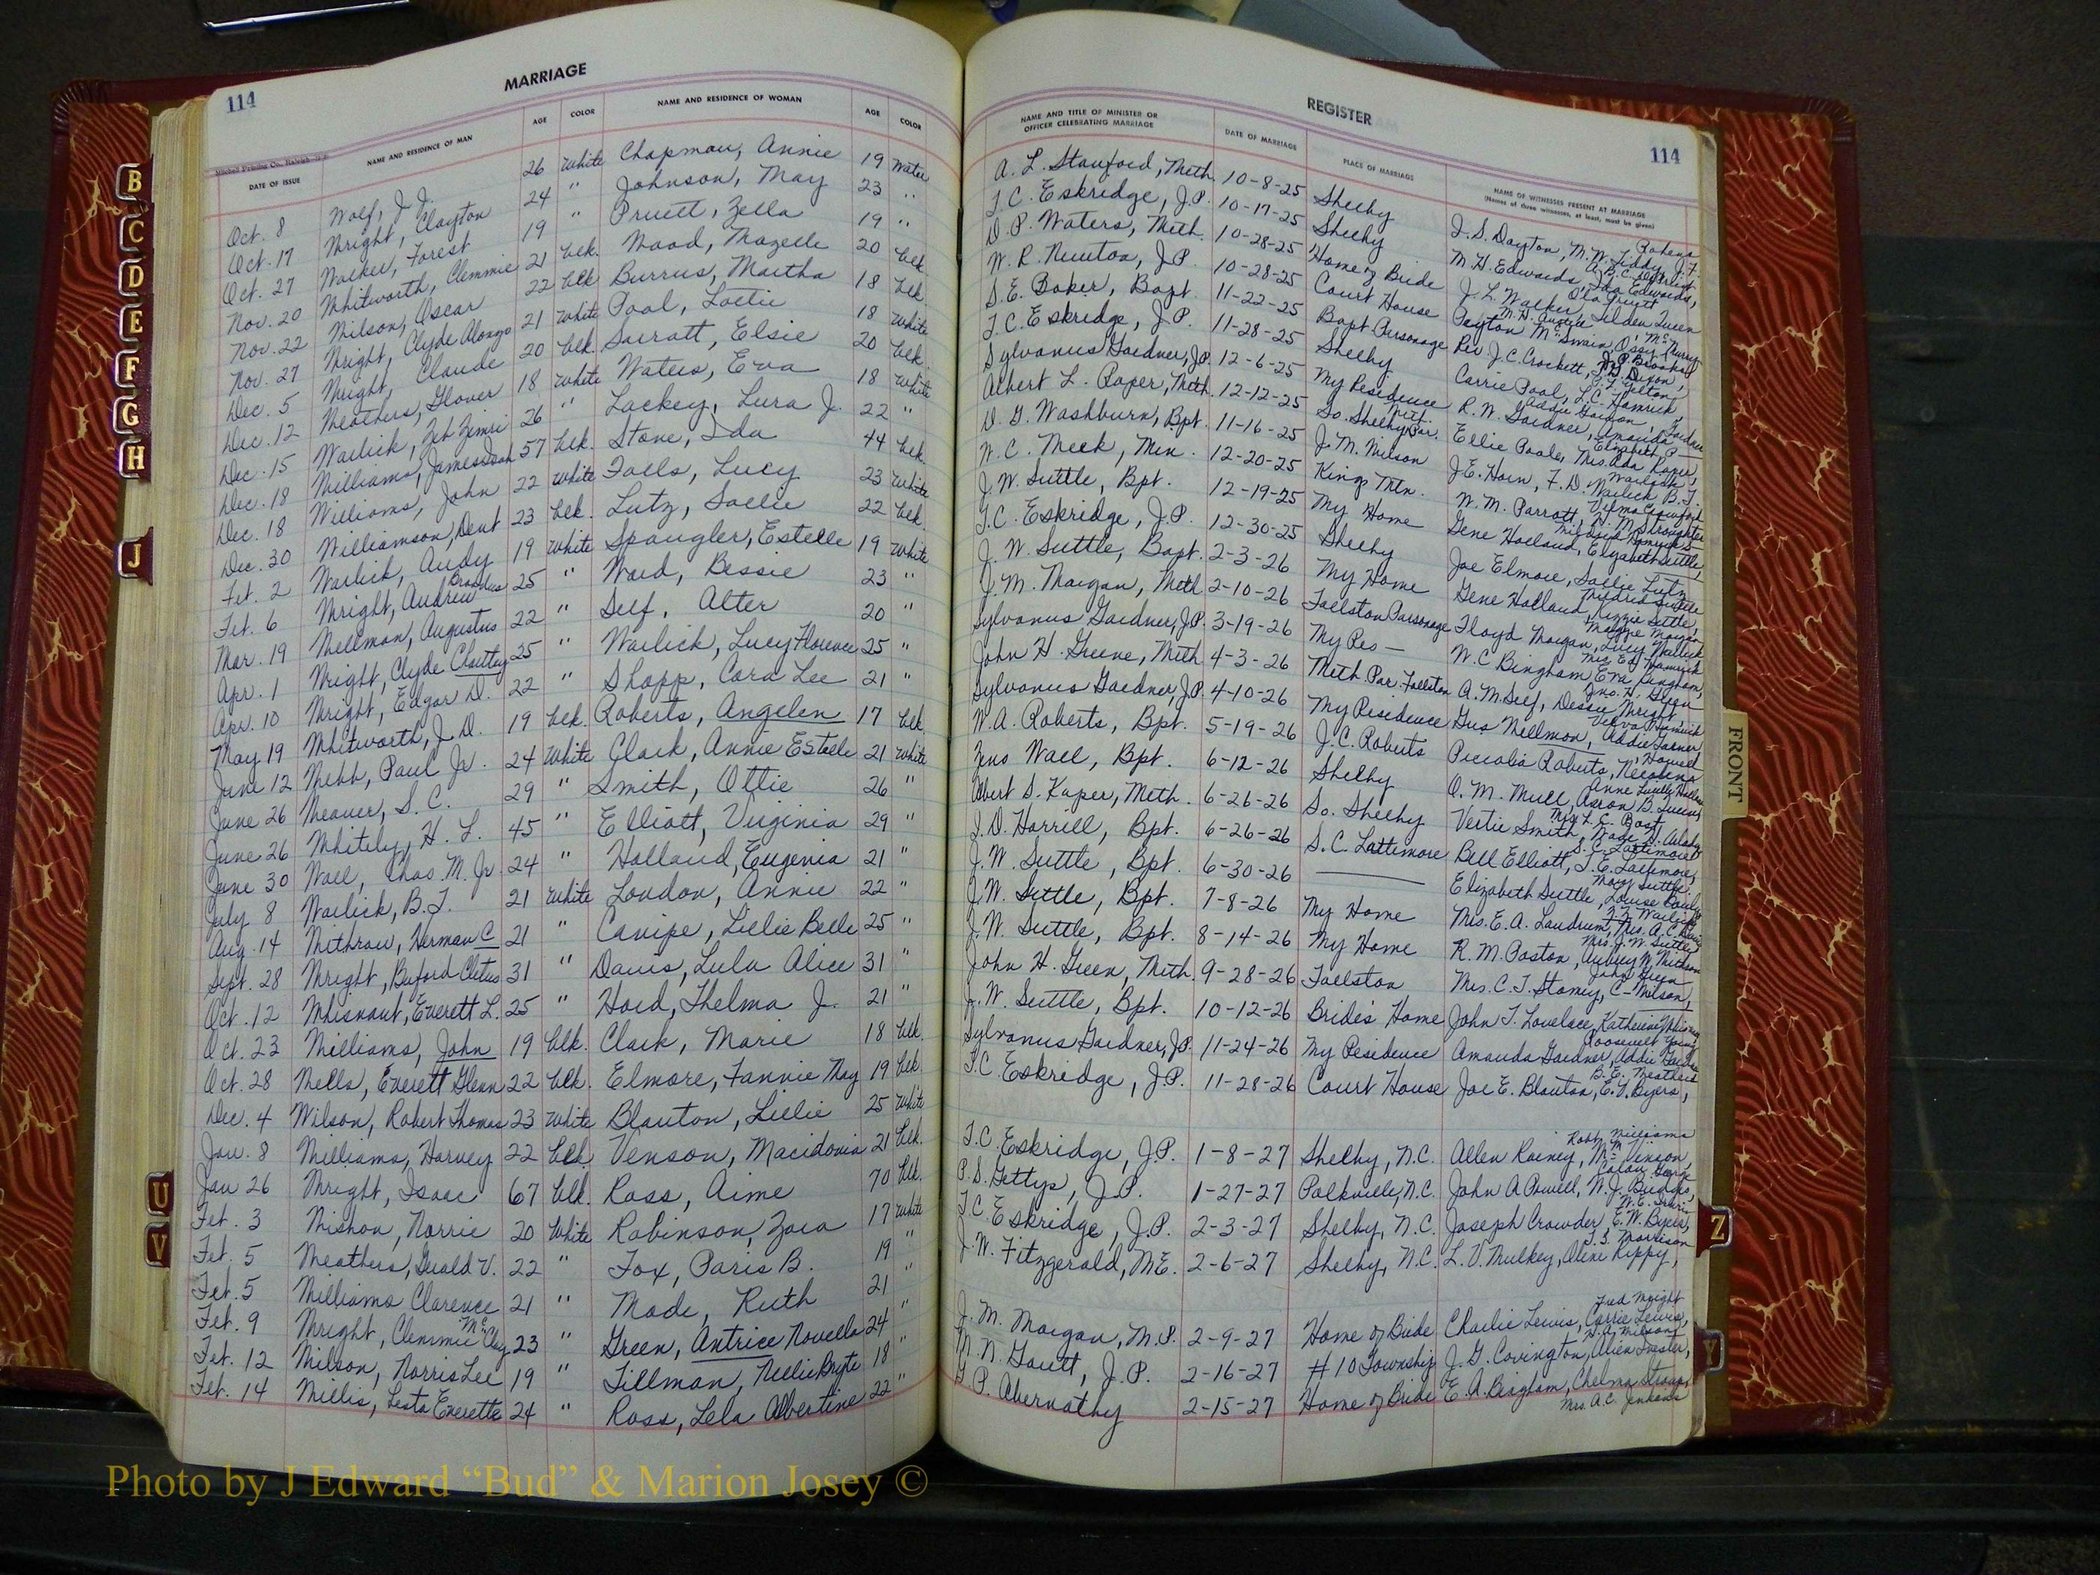 114
MARRIAGE
DATE OF ISSUE NAME AND RESIDENCE OF MAN AGE COLOR NAME AND RESIDENCE OF WOMAN AGE COLOR
Oct. 8 Wolf, J. J. 26 White Chapman, Annie 19 White
Oct. 17 Wright, Clayton 24 " Johnson, May 23 "
Oct. 27 Walker, Forest 19 " Pruett, Zella 19 "
Nov. 20 Whitworth, Clemmie 21 blk. Wood, Mozelle 20 blk.
Nov. 22 Wilson, Oscar 22 blk Burrus, Martha 18 blk.
Nov. 27 Wright, Clyde Alonzo 21 White Pool, Lottie 18 White
Dec. 5 Wright, Claude 20 blk. Surratt, Elsie 20 blk.
Dec. 12 Weathers, Glover 18 White Waters, Eva 18 White
Dec. 15 Warlick, Zeb Zimri 26 " Lackey, Lura J. 22 "
Dec. 18 Williams, James 57 blk. Stone, Ida 44 blk.
Dec. 18 Williams, John 22 White Falls, Lucy 23 White
Dec. 30 Williamson, Dent 23 blk. Lutz, Sallie 22 blk.
Feb. 2 Warlick, Audy 19 White Spangler, Estelle 19 White
Feb. 6 Wright, Andrew 25 " Ward, Bessie 23 "
Mar. 19 Wellmon, Augustus 22 " Self, Alter 20 "
Apr. 1 Wright, Clyde 25 " Warlick, Lucy Florence 25 "
Apr. 10 Wright, Edgar D. 22 " Shopp, Cora Lee 21 "
May 19 Whitworth, J. D. 19 blk. Roberts, Angelen 17 blk
June 12 Webb, Paul Jr. 24 White Clark, Annie Estelle 21 White
June 26 Weaver, S. C. 29 " Smith, Ottie 26 "
June 26 Whitely, H. L. 45 " Elliott, Virginia 29 "
June 30 Wall, Chas M. Jr 24 " Holland, Eugenia 21 "
July 8 Warlick, B. F. 21 White London, Annie 22 "
Aug. 14 Withrow, Herman C 21 " Canipe, Lillie Belle 25 "
Sept. 28 Wright, Buford Cletus 31 " Davis, Lula Alice 31 "
Oct. 12 Whisnant, Everett L. 25 " Hord, Thelma J. 21 "
Oct. 23 Williams, John 19 blk. Clark, Marie 18 blk.
Oct. 28 Wells, Everett Glenn 22 blk. Elmore, Fannie May 19 blk.
Dec. 4 Wilson, Robert Thomas 23 White Blanton, Lillie 25 White
Jan. 8 Williams, Harvey 22 blk Venson, Macidonia 21 blk.
Jan 26 Wright, Isaac 67 blk. Ross, Aime 70 blk.
Feb. 3 Wishon, Norrie 20 White Robinson, Zora 17 White
Feb. 5 Weathers, Gerald V. 22 " Fox, Paris B. 19 "
Feb. 5 Williams Clarence 21 " Mode, Ruth 21 "
Feb. 9 Wright, Clemmie Mc Clay 23 " Green, Antrice Novella 24 "
Feb. 12 Wilson, Norris Lee 19 " Tillman, Nellie Bryte 18 "
Feb. 14 Willis, Lesta Everette 24 " Ross, Lela Albertine 22 "
REGISTER
114
NAME AND TITLE OF MINISTER OR OFFICER CELEBRATING MARRIAGE DATE OF MARRIAGE PLACE OF MARRIAGE NAME OF WITNESSES PRESENT AT MARRIAGE
(Names of three witnesses, at least, must be given)
A. L. Stanford, Meth. 10-8-25 Shelby J. S. Dayton, M. W. Liddy, J. F.
T. C. Eskridge, J.P. 10-17-25 Shelby M. H. Edwards, Ida Edwards,
D. P. Waters, Meth. 10-28-25 Home of Bride J. L. Walker, Tilden Queen
W. R. Newton, J.P. 10-28-25 Court House Peyton McSwain, Ossy McMurry
S. E. Baker, Bapt. 11-22-25 Bapt Parsonage Rev. J. C. Crockett
T. C. Eskridge, J.P. 11-28-25 Shelby Carrie Pool, L. C. Hamrick,
Sylvanus Gardner, J.P. 12-6-25 My Residence R. W. Gardner, Amanda
Albert L. Roper, Meth. 12-12-25 So. Shelby Meth Par. Ellie Poole, Mrs. Ada Roper,
D. G. Washburn, Bpt. 11-16-25 J. M. Wilson J. E. Horn, F. D. Warlick B. T.
W. C. Meek, Min. 12-20-25 Kings Mtn. W. M. Parrott,
J. W. Suttle, Bpt. 12-19-25 My Home Gene Holland, Elizabeth Suttle,
T. C. Eskridge, J.P. 12-30-25 Shelby Joe Elmore, Sallie Lutz
J. W. Suttle, Bapt. 2-3-26 My Home Gene Holland, Kizzie Suttle,
J. M. Morgan, Meth 2-10-26 Fallston Parsonage Floyd Morgan, Lucy Warlick
Sylvanus Gardner, J.P. 3-19-26 My Res— W. C. Bingham, Era Bingham,
John H. Greene, Meth 4-3-26 Meth Par. Fallston A. M. Self, Dessie Wright
Sylvanus Gardner, J.P. 4-10-26 My Residence Gus Wellmon, Addie Farmer,
W. A. Roberts, Bpt. 5-19-26 J. C. Roberts Piccola Roberts,
Zeno Wall, Bpt. 6-12-26 Shelby O. M. Mull,
Albert S. Raper, Meth. 6-26-26 So. Shelby Vertie Smith,
J. D. Harrill, Bpt. 6-26-26 S. C. Lattimore Bell Elliott, T. E. Lattimore,
J. W. Suttle, Bpt. 6-30-26 —— Elizabeth Suttle,
J. W. Suttle, Bpt. 7-8-26 My Home Mrs. E. A. Landrum,
J. W. Suttle, Bpt. 8-14-26 My Home R. M. Poston,
John H. Green, Meth. 9-28-26 Fallston Mrs. C. T. Stamey,
J. W. Suttle, Bpt. 10-12-26 Bride's Home John T. Lovelace,
Sylvanus Gardner, J.P. 11-24-26 My Residence Amanda Gardner, Addie
T. C. Eskridge, J.P. 11-28-26 Court House Joe E. Blanton, E. V. Byers,
T. C. Eskridge, J.P. 1-8-27 Shelby, N.C. Allen Rainey,
P. S. Gettys, J.P. 1-27-27 Polkville, N.C. John A Powell,
T. C. Eskridge, J.P. 2-3-27 Shelby, N.C. Joseph Crowder, E. W. Byers,
J. W. Fitzgerald, M.E. 2-6-27 Shelby, N.C. L. V. Mulkey, Aline Rippy,
J. M. Morgan, M.P. 2-9-27 Home of Bride Charlie Lewis, Carrie Lewis, Fred Wright
M. N. Gantt, J.P. 2-16-27 #10 Township J. G. Covington,
G. P. Abernathy 2-15-27 Home of Bride E. A. Bingham, Chelma Stroup, Mrs. A.C. Jenkins
B
C
D
E
F
G
H
J
U
V
FRONT
Z
Y
Photo by J Edward “Bud” & Marion Josey ©